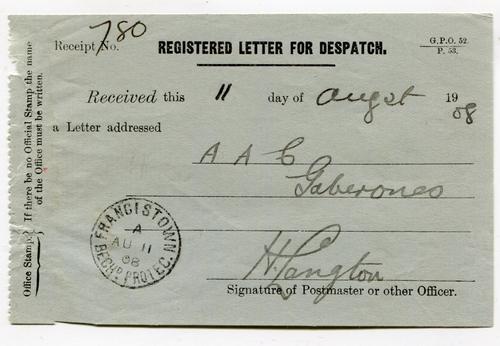 780
Receipt No. REGISTERED LETTER FOR DESPATCH. G.P.O. 52.
P. 53.
Received this 11 day of Augst 1908
a Letter addressed
A A C
Gaberones
H. Langton
Signature of Postmaster or other Officer.
FRANCISTOWN
A
AU 11
08
BECHD PROTEC.
Office Stamp. { If there be no Official Stamp the name
of the Office must be written.